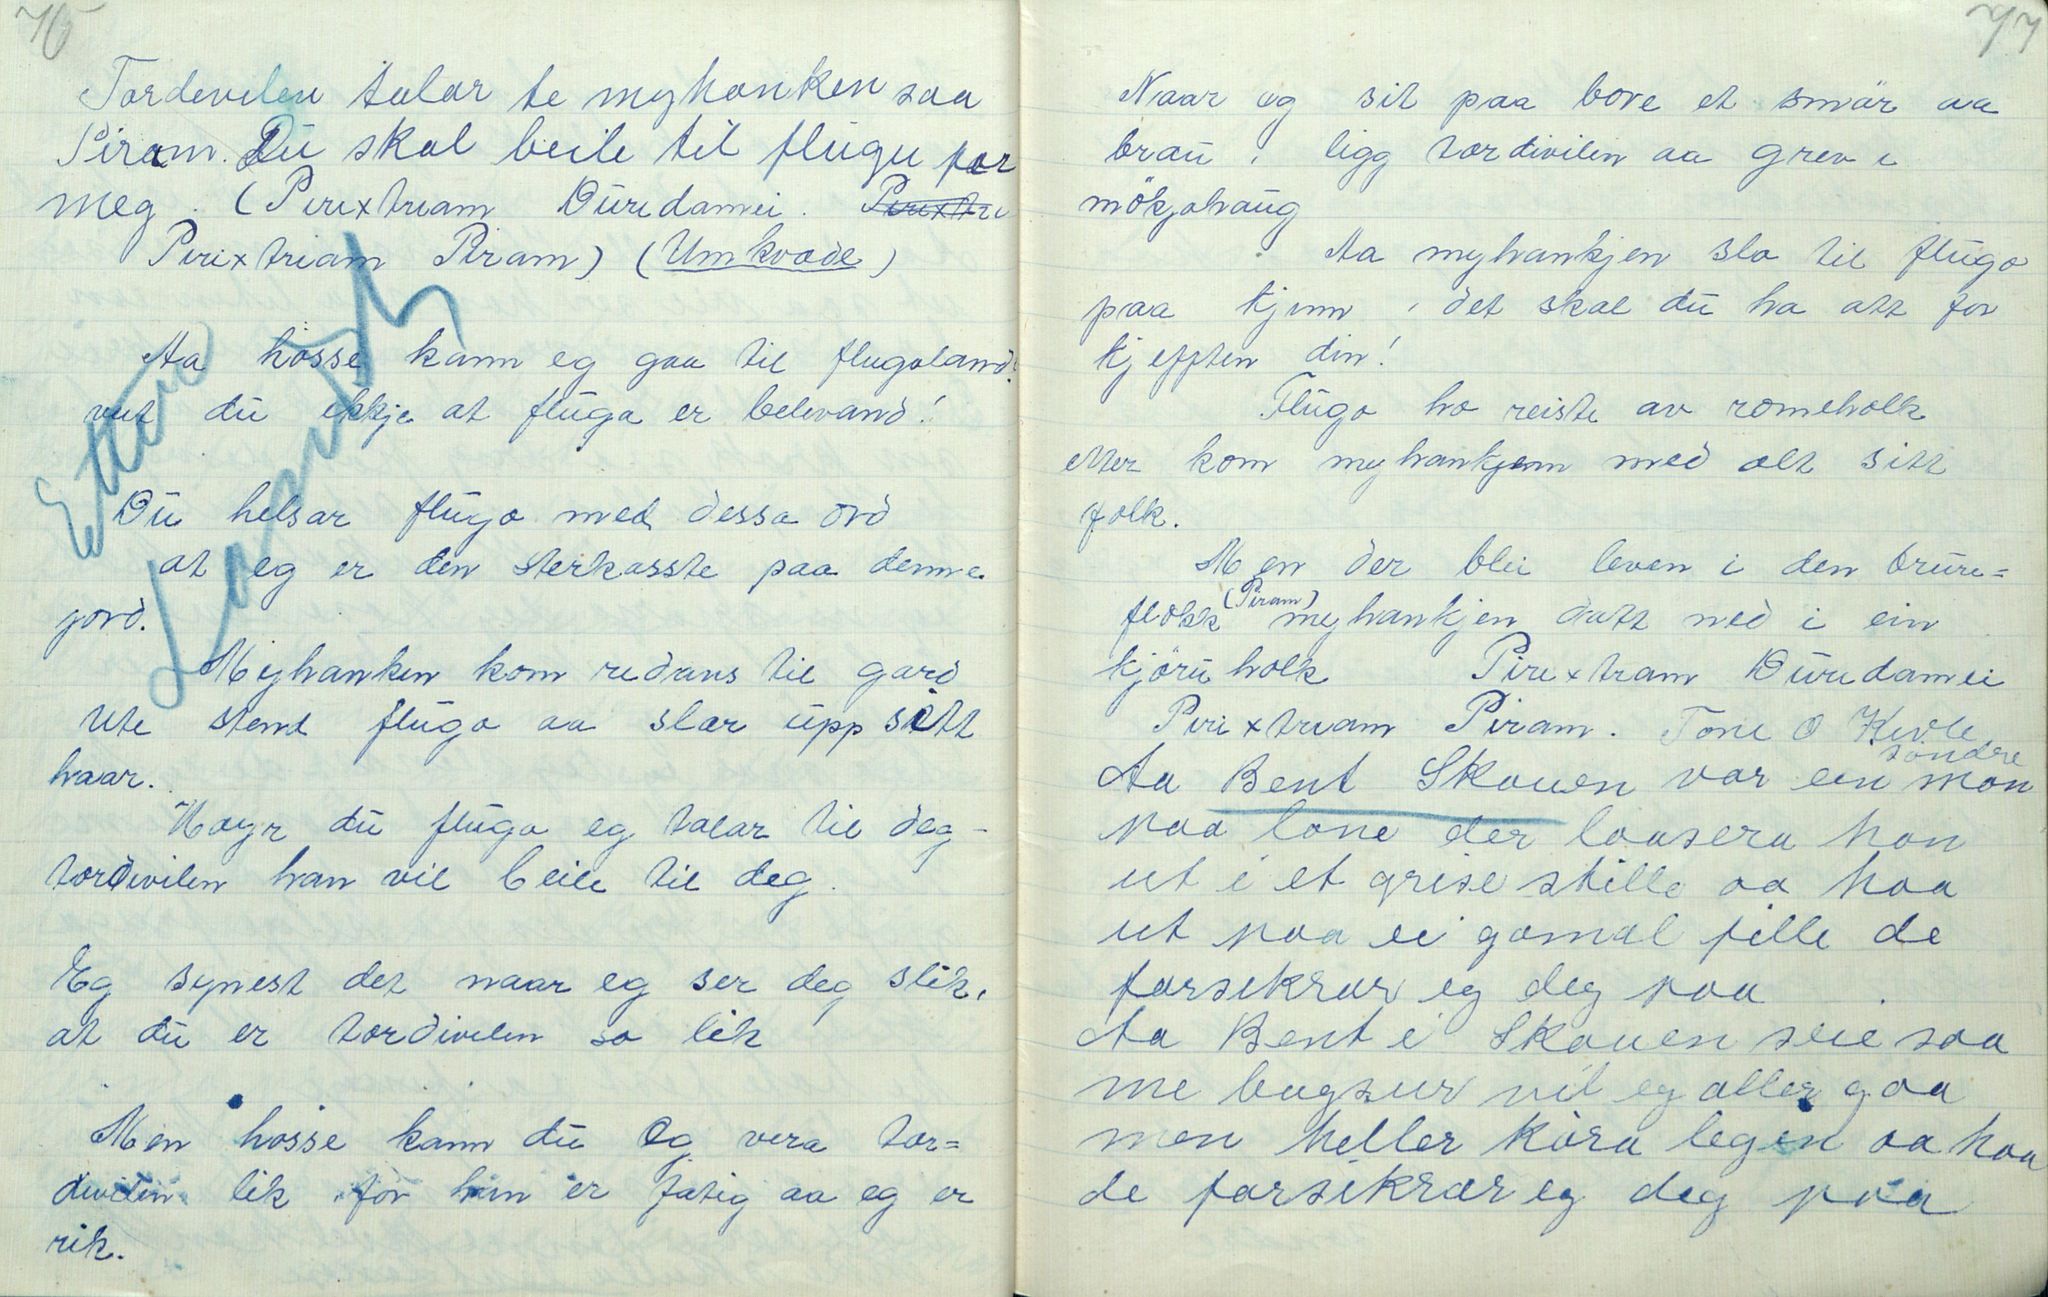 76
Tordevilen talar te myhanken saa
Piram. Du skal beile til flugu for
meg. (Pirixtriam Duridamei. Pirixtri
Pirixtriam Piram) (Umkvæde)
Aa hosse kann eg gaa til flugoland?
veit du ikkje at fluga er belevand!
Du helsar flugo med dessa ord
at eg er den sterkasste paa denne
jord.
Myhanken kom ridans til gard
Ute stend flugo aa slær upp sitt
haar.
Høyr du flugo eg talar til deg -
tordivilen han vil beile til deg.
Eg synest det naar eg ser deg slik,
at du er tordivilen so lik
Men hosse kann du og vera tor=
divilen lik for hin er fatig aa eg er
rik.
77
Naar eg sit paa bore et smör aa
brau, ligg tordivilen aa grev i
mökjahaug
Aa myhankjen slo til flugo
paa kjinn, det skal du ha att for
kjefften din!
Flugo ho reiste av romeholk
etter kom myhankjenn med alt sitt
folk.
Men der blei leven i den brure=
flokk (Piram) myhankjen datt ned i ein
kjöruholk Pirixtriam Duridamei
Pirixtriam Piram. Tone O Kivle
söndre
Aa Bent Skouen var ein mon
paa lone der laasera han
ut i et grise stille aa haa
ut paa ei gamal fille de
forsikrar eg deg paa
Aa Bent i Skouen seie saa
me bugsur vil eg aller gaa
men heller köra legin aa haa
de forsikrar eg deg paa